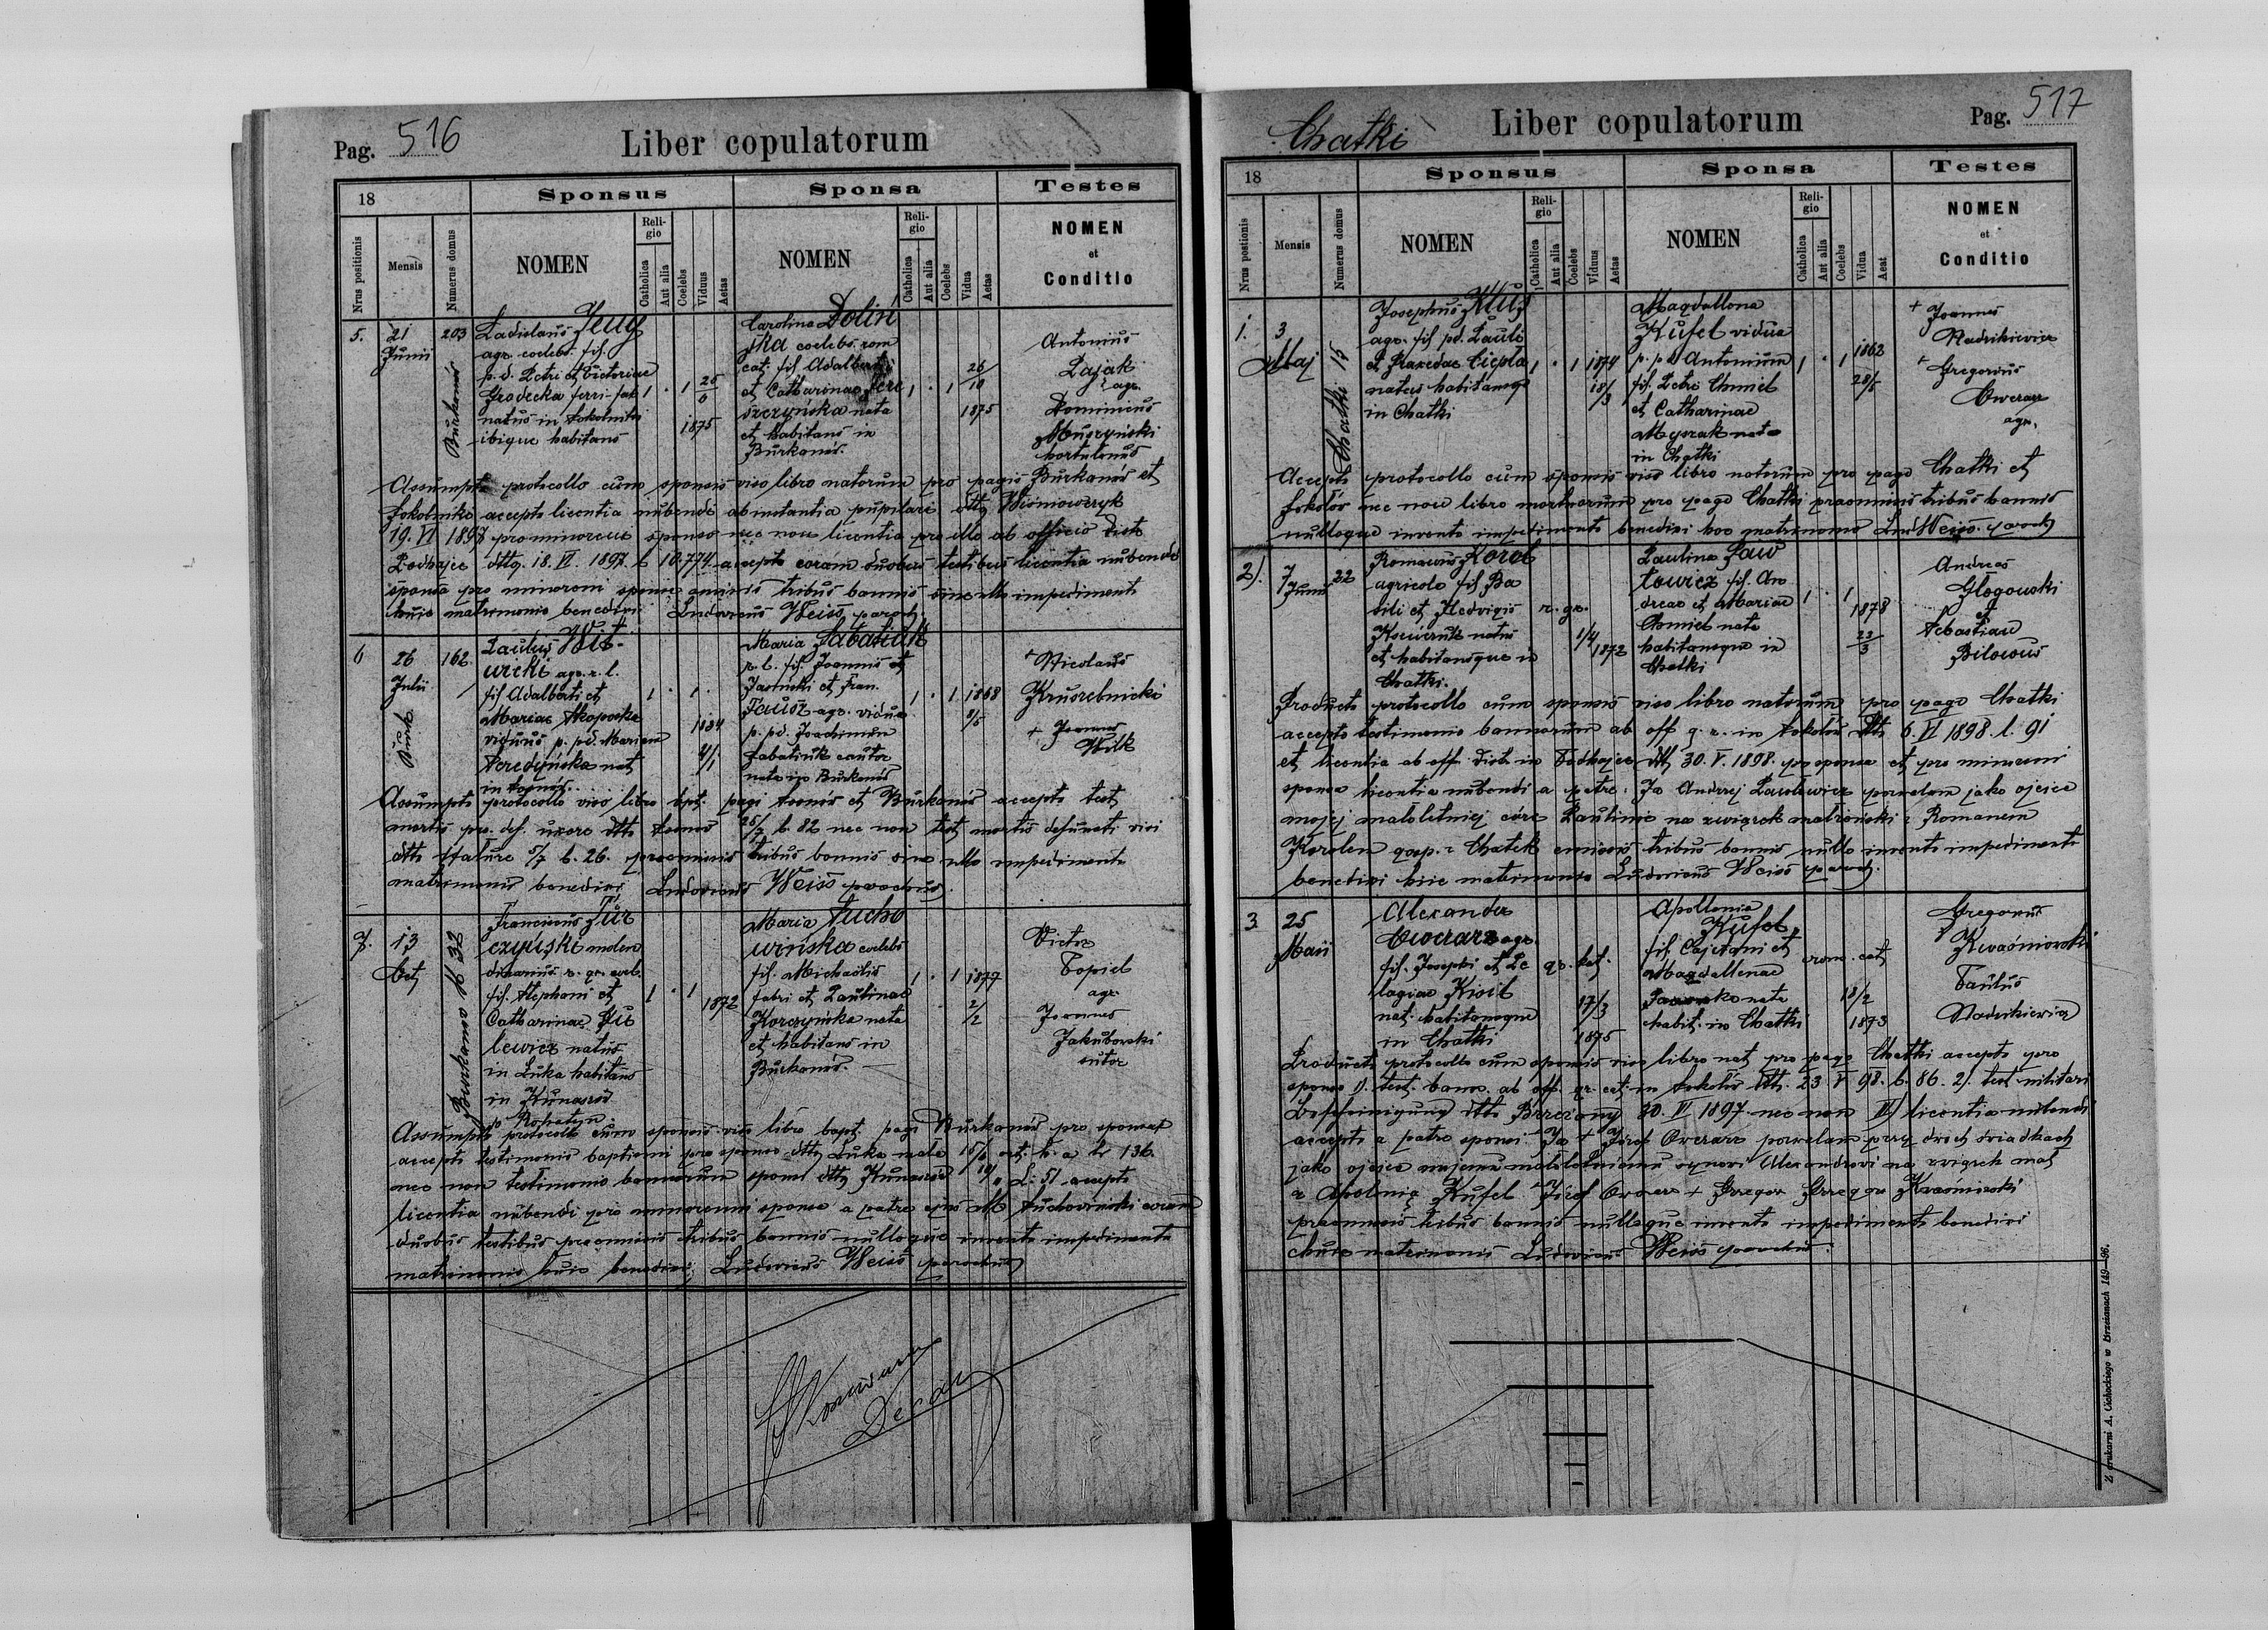 Pag. 516
Liber copulatorum
18
Sponsus
Sponsa
Testes
Nrus positionis
Mensis
Numerus domus
NOMEN
Religio
Catholica
Aut alia
Coelebs
Viduus
Aetas
NOMEN
Religio
Catholica
Aut alia
Coelebs
Vidua
Aetas
NOMEN
et
Conditio
5.
21
Junii
203
Burkanów
Ladislaus
agr. coelebs. fil.
p. d. Petri et Victoriae
Grodecka
natus in Sokolniki
ibique habitans
1 . 1
1875
Carolina Doliń
ska coelebs. rom
cat. fil Adalberti
et Catharinae
szczyńska nata
et habitans in
Burkanów.
1 . 1
26
10
1875
Antonius
Pająk
agr.
Dominicus
Muszyński
hortulanus
Assumpto protocollo cum sponsis viso libro natorum pro pagis Burkanów et
Sokolniki accepta licentia nubendi ab instantia pupilari dtto Wiśniowczyk
19. VI 1897 pro minorenni sponso nec non licentia pro illo ab officio distr
Podhajce dtto. 18. VI. 1897. L 10.774 accepta coram duobus testibus licentia nubendi
sponsa pro minoreni sponsae omissis tribus bannis sine ullo impedimento
huic matrimonio benedixi Ludovicus Weiss paroch
6
26
Julii
162
Burk
Paulus Wit-
wicki agr. r. l.
fil Adalberti et
Mariae
viduus p. pd. Mariam
nat
in
1 . 1
1834
4/1
Maria Sabatiuk
r. l. fil. Joannis et
Jasiński et Fran.
agr. vidua
p. pd. Joachimum
Sabatiuk
nata in Burkanów
1 . 1 1868
5/5
+ Nicolaus
Kruszelnicki
+ Joannes
Wilk
Assumpto protocollo viso libro bpt. pagi et Burkanów accepto test
mortis pro. def. uxore dtto 25/7 L. 82 nec non test mortis defuncti viri
dtto 5/7 L. 26. praemissis tribus bannis sine ullo impedimento
matrimonio benedixi Ludovicus Weiss parochus
7.
13
Oct
Burkanow N 32
Franciscus Jur
czyński molen
dinarius r. gr. coeb.
fil. Stephani et
Catharinae
lewicz natus
in Łuka habitans
in Kunaszów
p Rohatyn.
1 . 1
1872
Maria Sucho
wińska coelebs
fil. Michaelis
fabri et Paulinae
Korczyńska nata
et habitans in
Burkanów.
1 . 1 1877
2/2
Victor
Topiel
agr.
Joannes
Jakubowski
sutor
Assumpto protocollo cum sponsis viso libro bapt. pagi Burkanów pro sponsa
accepto testimonio baptismi pro sponso dtto Łuka mała 15/6 L 136
nec non testimonio bannorum sponsi dtto Kunaszów L. 51 accepta
licentia nubendi pro minorenni sponsa a patre ejus M Suchowiński coram
duobus testibus praemissis tribus bannis nulloque invento impedimento
matrimonio huic benedixi; Ludovicus Weiss parochus
Decan
Chatki
Liber copulatorum
Pag. 517
18
Sponsus
Sponsa
Testes
Nrus postionis
Mensis
Numerus domus
NOMEN
Religio
Catholica
Aut alia
Coelebs
Viduus
Aetas
NOMEN
Religio
Catholica
Aut alia
Coelebs
Vidua
Aeat
NOMEN
et
Conditio
1.
3
Maj
Chatki 15
Josephus Kluz
agr. fil pd. Pauli
et Praxedae Ciepła
natus habitansq
in Chatki
1 . 1 1874
18/3
Magdallena
Kufel vidua
p. pd Antonium
fil. Petri Chmiel
et Catharinae
Myszak nata
in Chatki
1 . 1 1862
28/5
+ Joannes
Nadzikiewicz
+ Gregorius
Owerarz
agr.
Accepto protocollo cum sponsis viso libro natorum pro pago Chatki et
Sokołów nec non libro mortuorum pro pago Chatki praemissis tribus bannis
nulloque invento impedimento benedixi hoc matrimonio Lud Weiss. paroch
2).
7
Junii
22
Romanus Korol
agricola fil Ba
sili et Hedvigis
natus
et habitansque in
Chatki.
r. gr.
1/4
1872
Paulina Paw
łowicz fil. An
dreae et Mariae
Chmiel nata
habitansque in
Chatki
1 . 1
1878
23
3
Andreas
Głogowski
et
Sebastian
Biłowus
Producto protocollo cum sponsis viso libro natorum pro pago Chatki
accepto testimonio bannorum ab off g. r. in Sokołów dtto 6. VI 1898. l. 91
et licentia ab off. distr in Podhajce dtt 30. V. 1898. pro sponso et pro minorenni
sponsa licentia nubendi a patre: Ja Andrzej Pawłowicz pozwalam jako ojciec
mojej małoletniej córce Paulinie na związek małżeński z Romanem
Korolem gosp. z Chatek emissis tribus bannis nullo invento impedimento
benedixi huic matrimonio Ludovicus Weiss paroch.
3.
25
Maii
Alexander
Owerarz agr.
fil. Josephi et Pe
lagiae Kisil
nat. habitansque
in Chatki
gr. kat.
17/3
1875
Apollonia
Kufel
fil. Cajetani et
Magdallenae
nata
habit. in Chatki
rom. cat
18/2
1873
Gregorius
Kwaśniowski
Paulus
Nadzikiewicz
Producto protocollo cum sponsis viso libro nat pro pago Chatki accepto pro
sponso 1). test. bann. ab off. gr. cat. in Sokołów dtto. 23 V 98. L. 86. 2). test militari
Bescheinigung dtto Brzeżany 30. VI 1897. nec non III) licentia nubendi
accepta a patre sponsi. Ja + Józef Owerarz pozwalam przy dwóch świadkach
jako ojciec mojemu małoletniemu synowi Alexandrowi na związek mał
z Apolonią Kufel Józef Owerarz + Grzegorz Kwaśniowski
praemissis tribus bannis nulloque invento impedimento benedixi
huic matrimonio Ludovicus Weiss parochus.
Z drukarni A. Cichockiego w Brzeżanach 149—96.